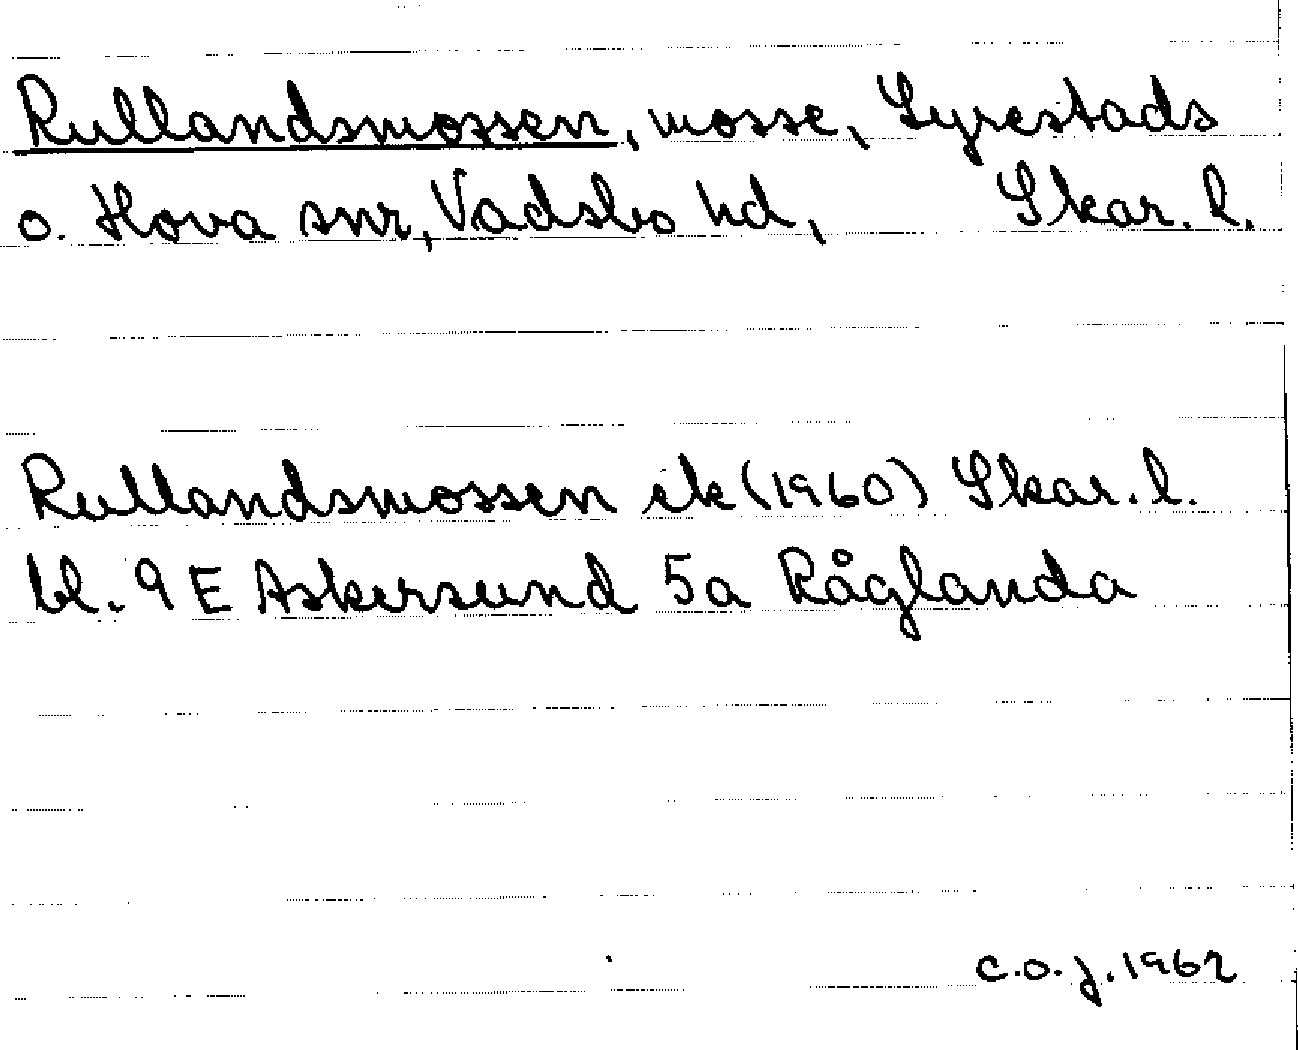 Rullandsmossen, mosse, Lyrestads
o. Hova snr, Vadsbo hd, Skar. l.
Rullandsmossen ek (1960) Skar. l.
bl. 9 E Askersund 5a Råglanda
C.O.J. 1962